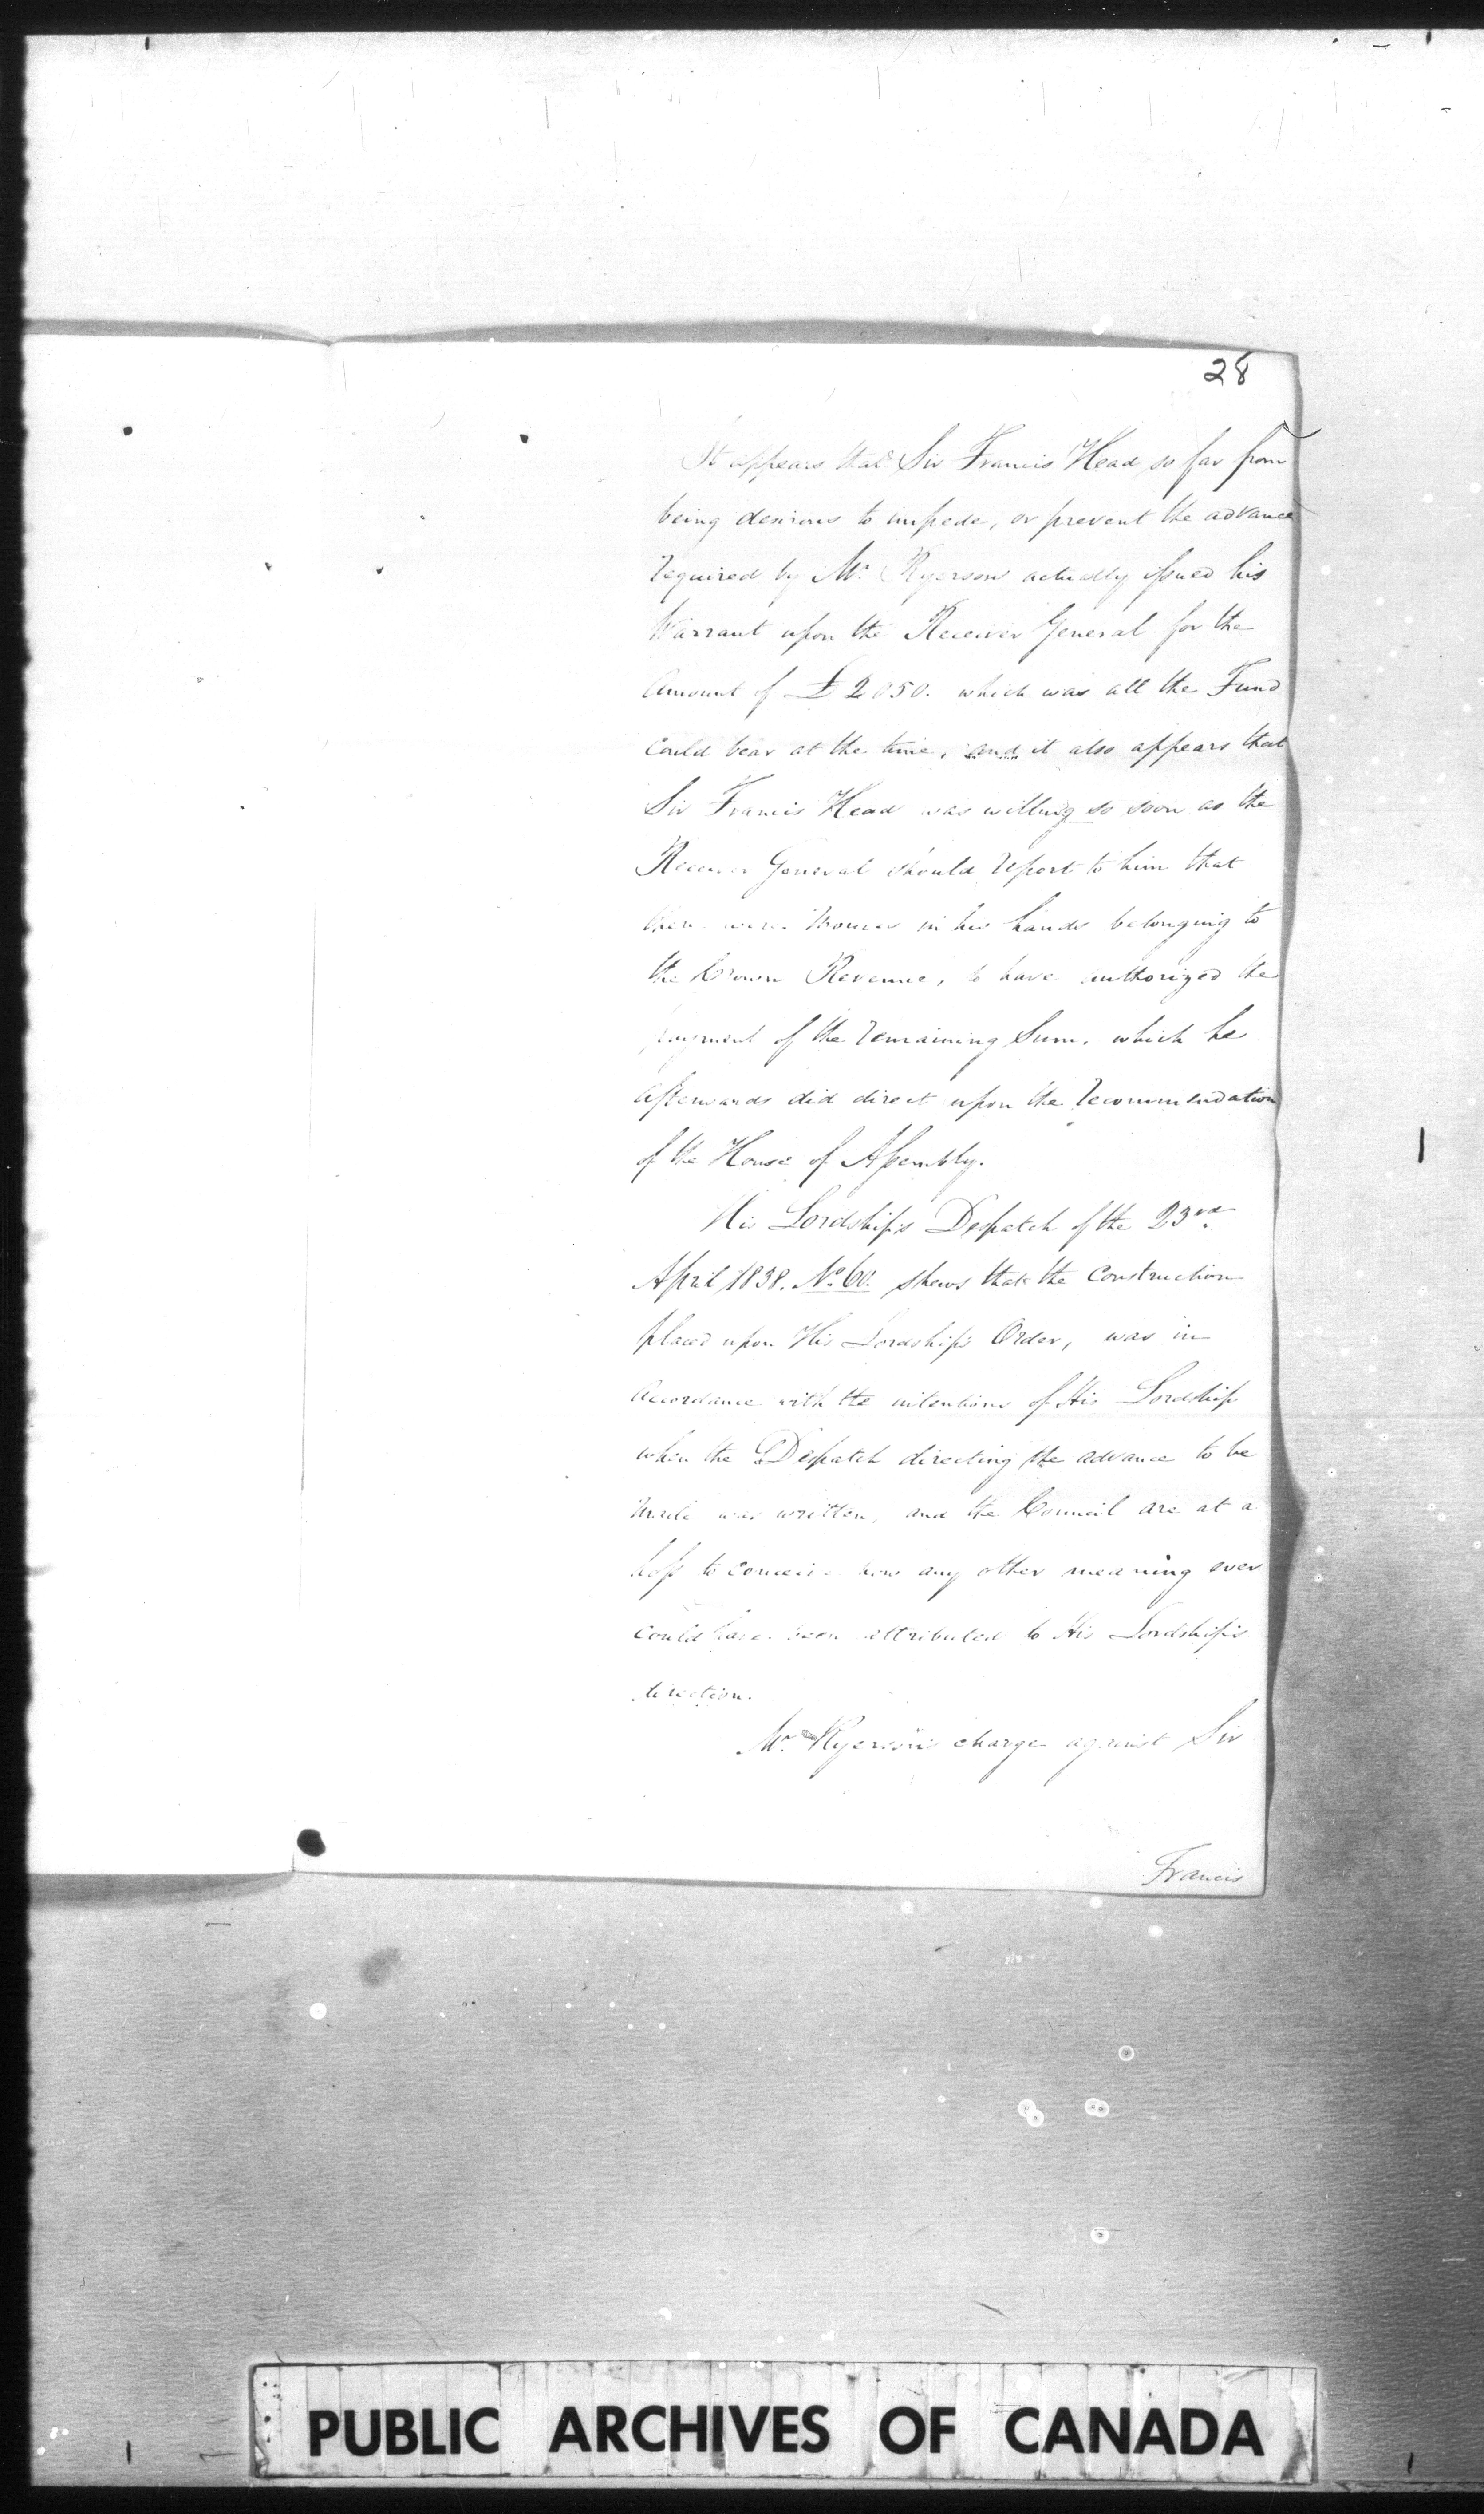 28
It appears that Sir Francis Head so far from
being desirous to impede, or prevent the advance
required by Mr. Ryerson actually issued his
Warrant upon the Receiver General for the
Amount of £2050. which was all the Fund
could bear at the time, and it also appears that
Sir Francis Head was willing so soon as the
Receiver General should report to him that
there were Monies in his hands belonging to
the Crown Revenue, to have authorized the
payment of the remaining Sum, which he
afterwards did direct upon the recommendation
of the House of Assembly.
His Lordship's Despatch of the 23rd
April 1838. No. 60. shews that the Construction
placed upon His Lordship's Order, was in
accordance with the intentions of His Lordship
when the Despatch directing the advance to be
made was written, and the Council are at a
loss to conceive how any other meaning ever
could have been attributed to His Lordship's
direction.
Mr. Ryerson's charge against Sir
Francis
PUBLIC ARCHIVES OF CANADA